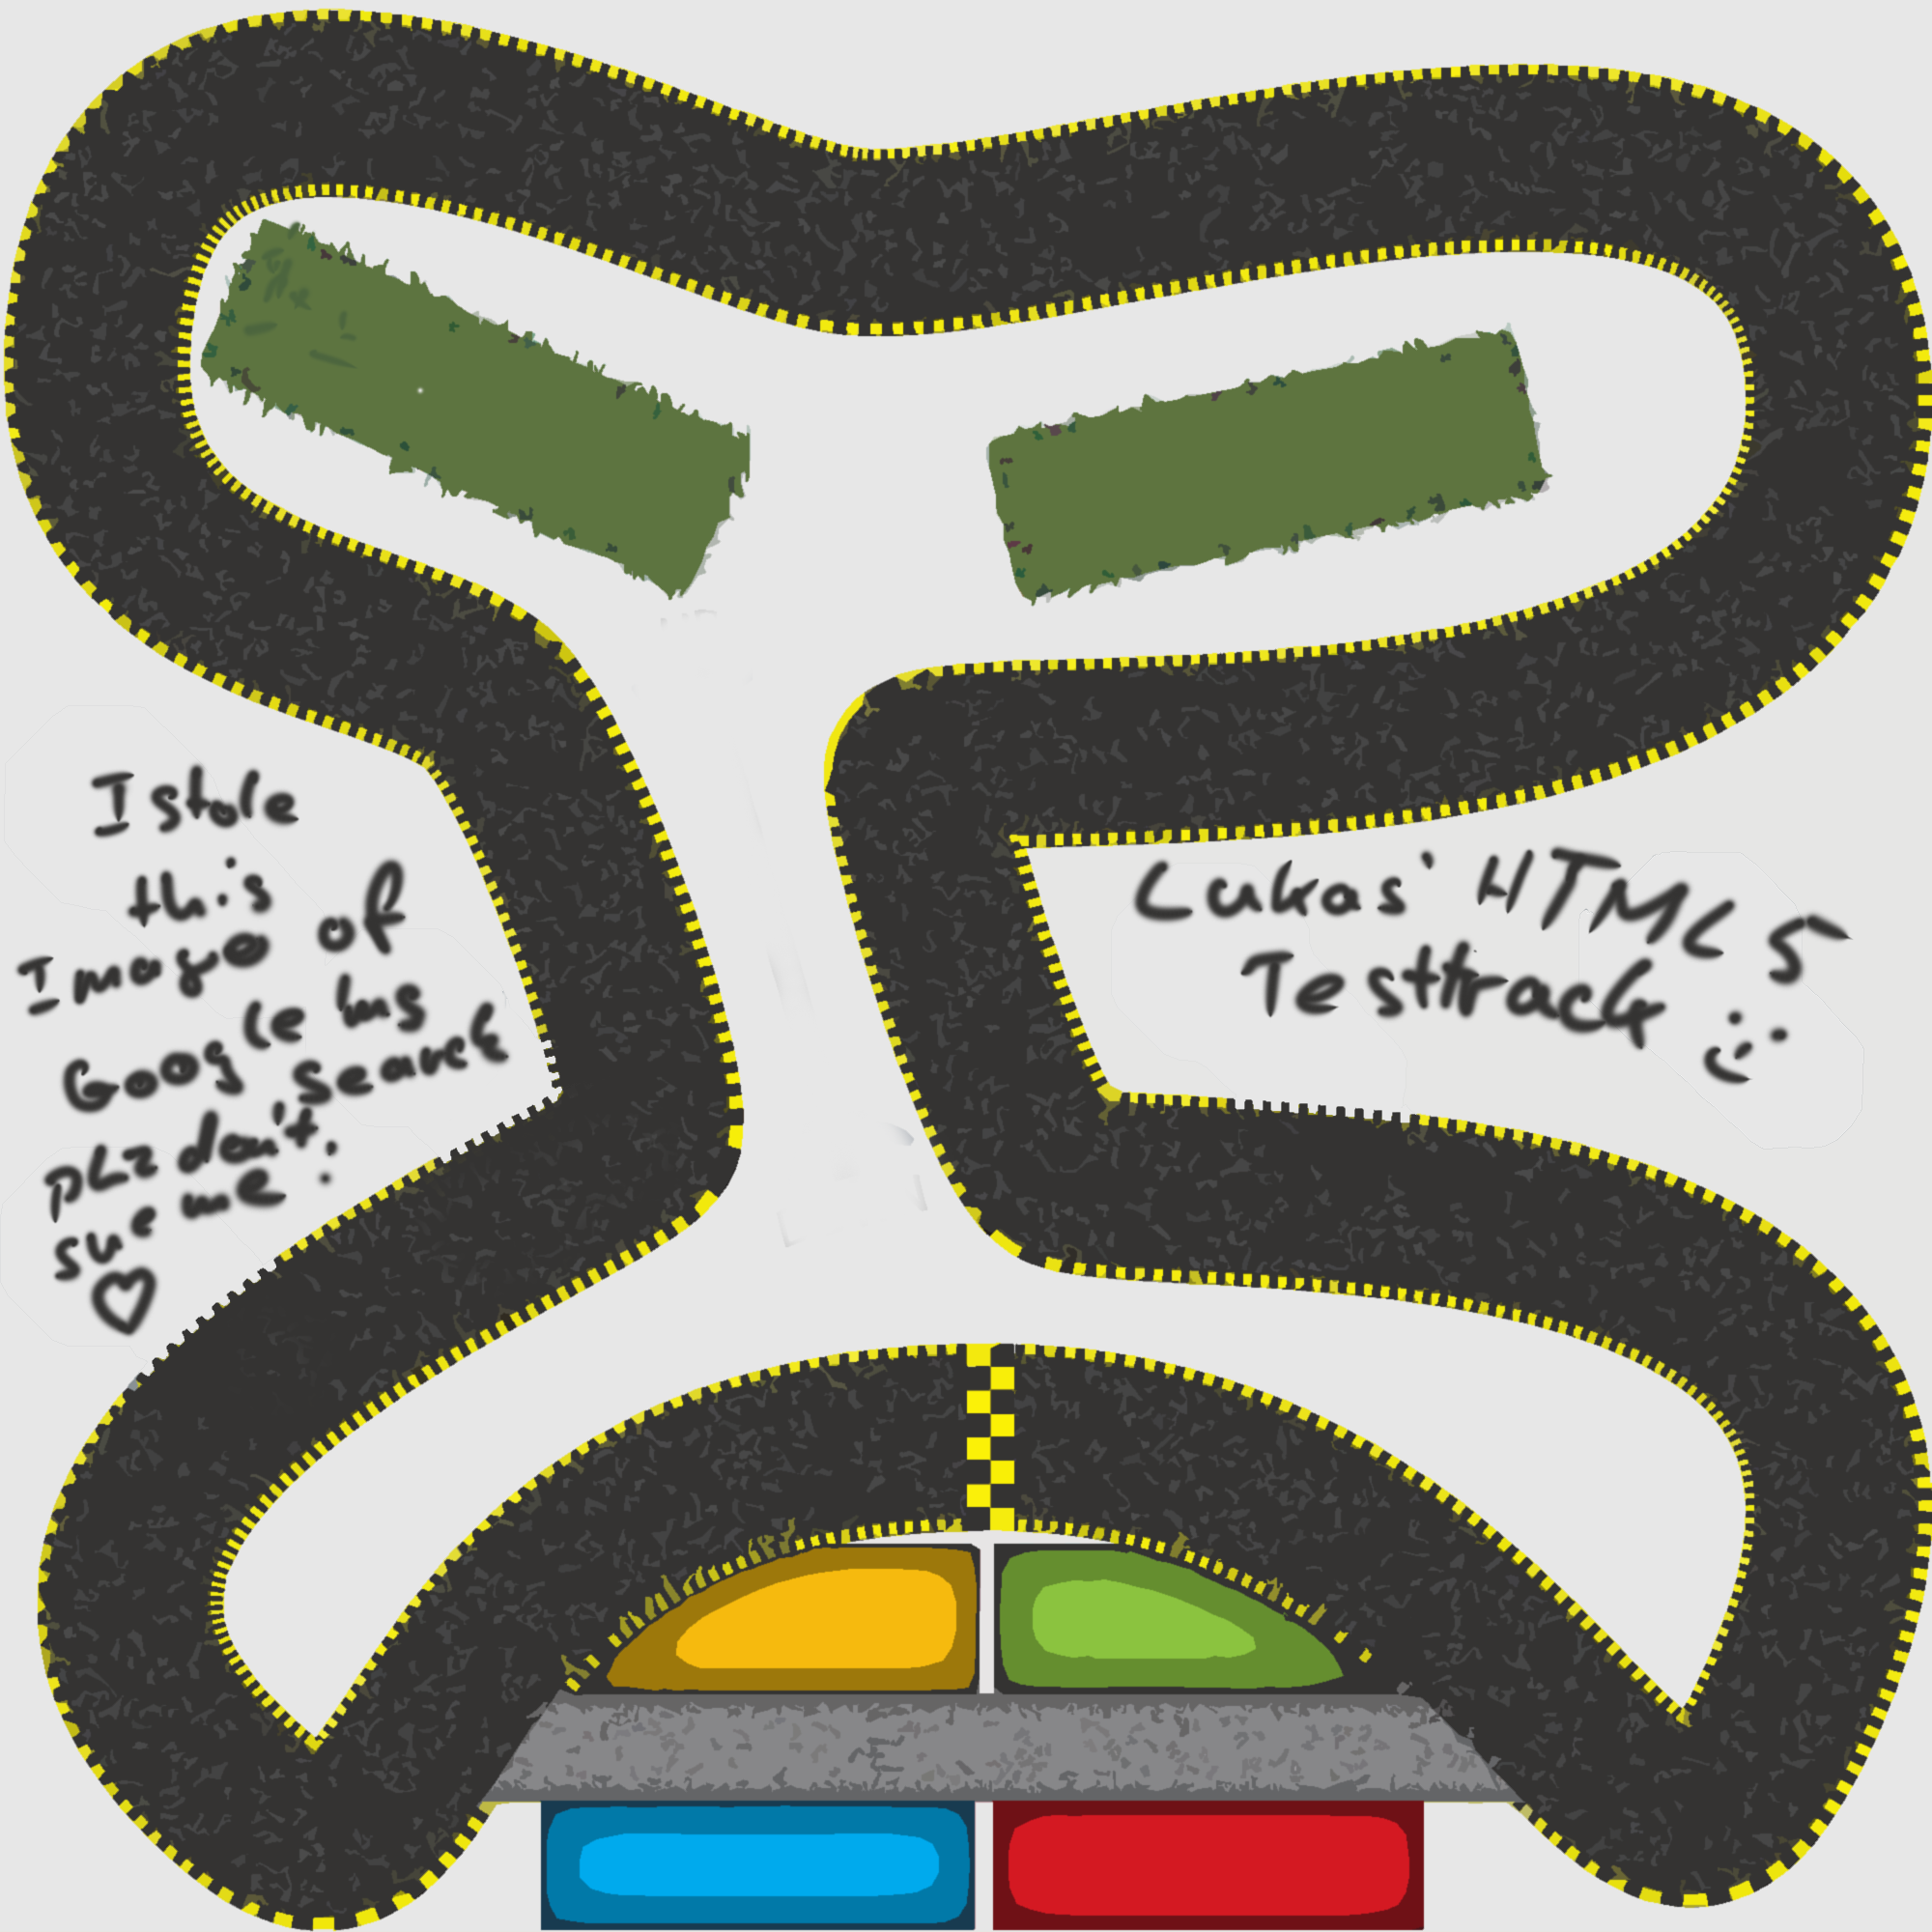 I stole
this
Image of
Google Ims
Search
plz don't
sue me!
♡
Lukas' HTML5
Testtrack :)